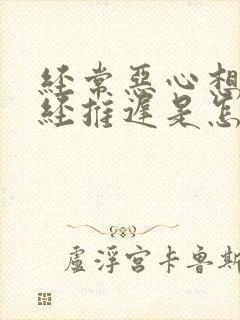 經常惡心想
經推遲是怎
盧浮宮卡魯斯